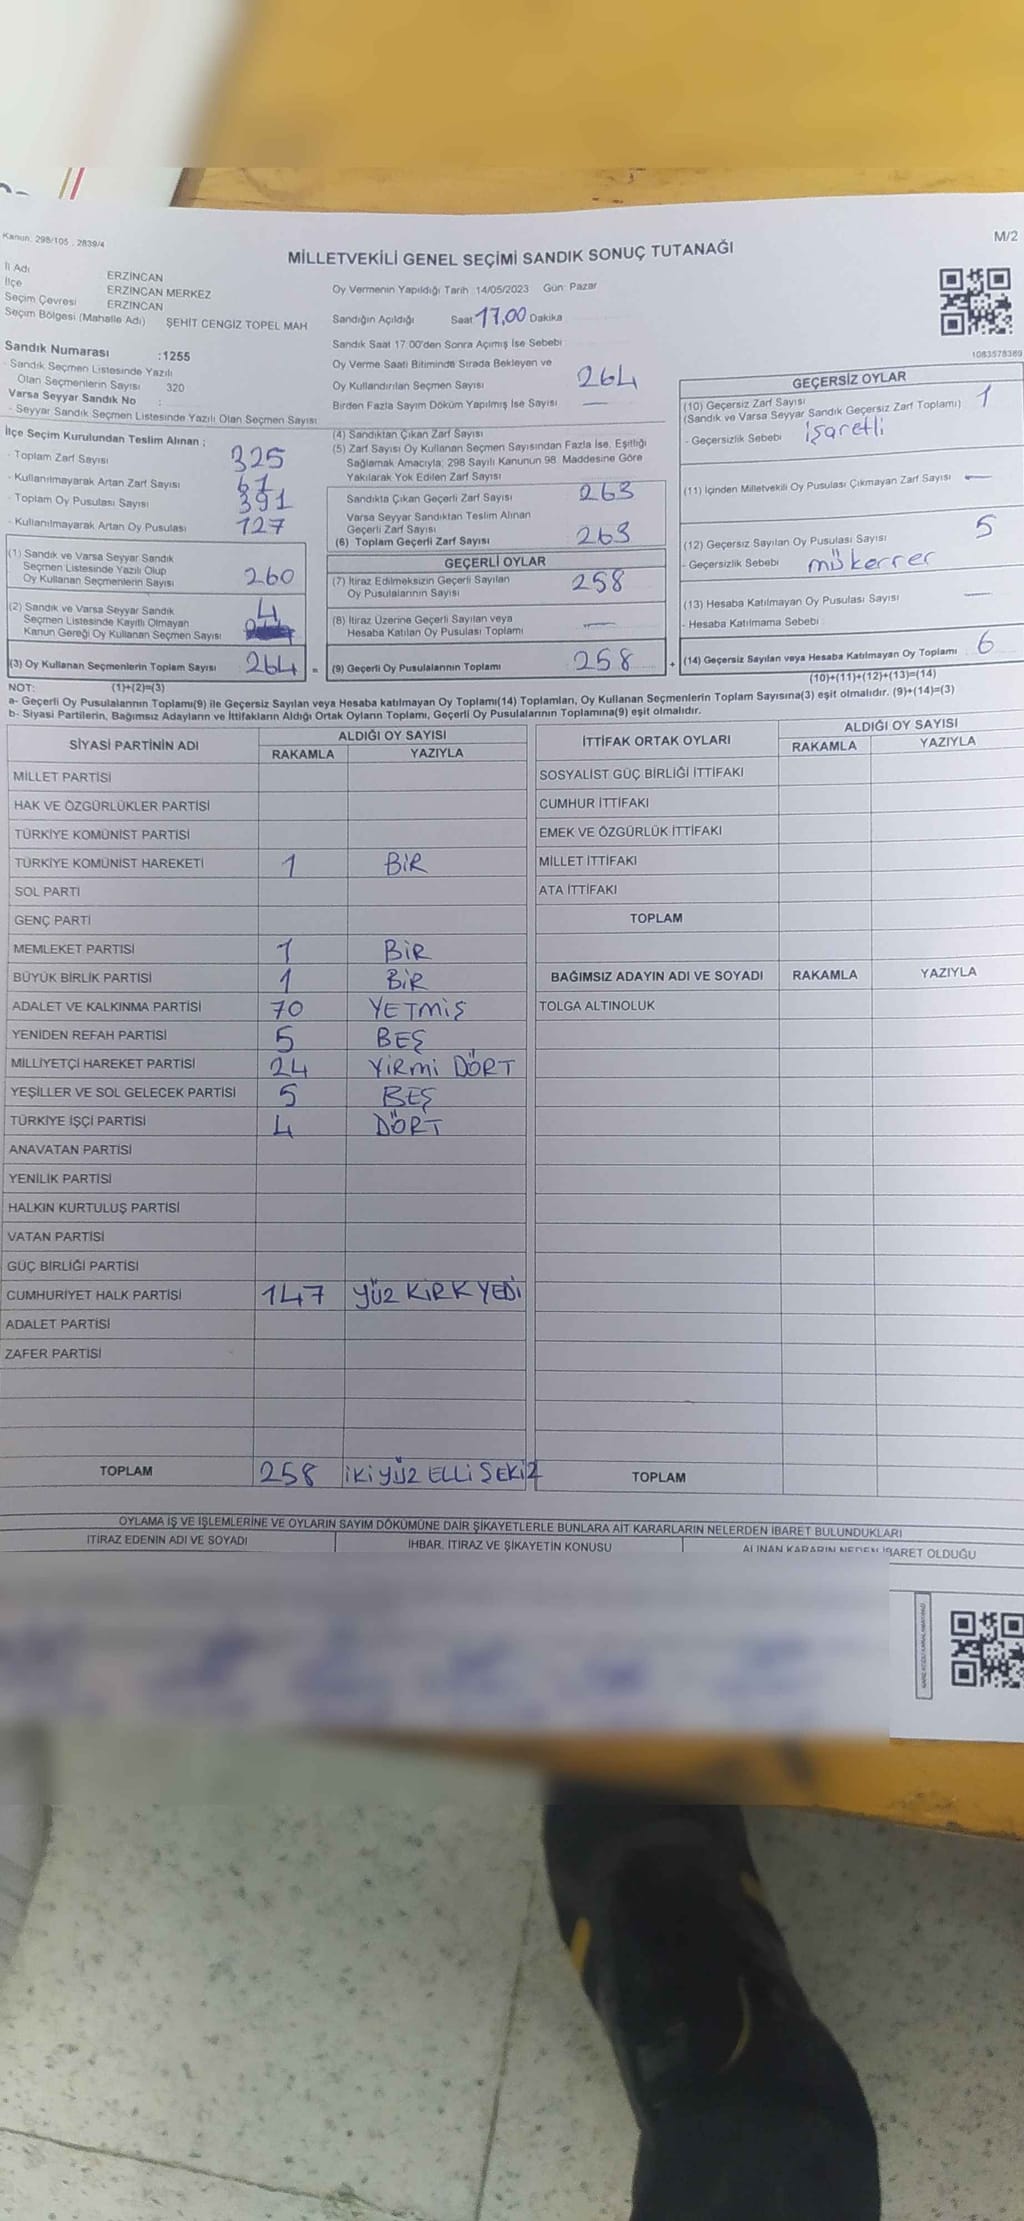 Kanun: 298/105 , 2839/4
M/2
MİLLETVEKİLİ GENEL SEÇİMİ SANDIK SONUÇ TUTANAĞI
İl Adı ERZİNCAN
İlçe ERZİNCAN MERKEZ
Seçim Çevresi ERZİNCAN
Seçim Bölgesi (Mahalle Adı) ŞEHİT CENGİZ TOPEL MAH
Sandık Numarası :1255
- Sandık Seçmen Listesinde Yazılı
Olan Seçmenlerin Sayısı 320
Varsa Seyyar Sandık No :
- Seyyar Sandık Seçmen Listesinde Yazılı Olan Seçmen Sayısı
Oy Vermenin Yapıldığı Tarih :14/05/2023 Gün: Pazar
Sandığın Açıldığı Saat 17,00 Dakika
Sandık Saat 17:00'den Sonra Açımış İse Sebebi
Oy Verme Saati Bitiminde Sırada Bekleyen ve
Oy Kullandırılan Seçmen Sayısı 264
Birden Fazla Sayım Döküm Yapılmış İse Sayısı —
1083578389
İlçe Seçim Kurulundan Teslim Alınan ;
- Toplam Zarf Sayısı 325
- Kullanılmayarak Artan Zarf Sayısı 61
- Toplam Oy Pusulası Sayısı 391
- Kullanılmayarak Artan Oy Pusulası 127
(1) Sandık ve Varsa Seyyar Sandık
Seçmen Listesinde Yazılı Olup
Oy Kullanan Seçmenlerin Sayısı 260
(2) Sandık ve Varsa Seyyar Sandık
Seçmen Listesinde Kayıtlı Olmayan
Kanun Gereği Oy Kullanan Seçmen Sayısı 4
(3) Oy Kullanan Seçmenlerin Toplam Sayısı 264 =
(4) Sandıktan Çıkan Zarf Sayısı
(5) Zarf Sayısı Oy Kullanan Seçmen Sayısından Fazla İse, Eşitliği
Sağlamak Amacıyla; 298 Sayılı Kanunun 98. Maddesine Göre
Yakılarak Yok Edilen Zarf Sayısı
Sandıkta Çıkan Geçerli Zarf Sayısı 263
Varsa Seyyar Sandıktan Teslim Alınan
Geçerli Zarf Sayısı
(6) Toplam Geçerli Zarf Sayısı 263
GEÇERLİ OYLAR
(7) İtiraz Edilmeksizin Geçerli Sayılan
Oy Pusulalarının Sayısı 258
(8) İtiraz Üzerine Geçerli Sayılan veya
Hesaba Katılan Oy Pusulası Toplamı —
(9) Geçerli Oy Pusulalarının Toplamı 258 +
GEÇERSİZ OYLAR
(10) Geçersiz Zarf Sayısı 1
(Sandık ve Varsa Seyyar Sandık Geçersiz Zarf Toplamı)
- Geçersizlik Sebebi işaretli
(11) İçinden Milletvekili Oy Pusulası Çıkmayan Zarf Sayısı —
(12) Geçersiz Sayılan Oy Pusulası Sayısı 5
- Geçersizlik Sebebi mükerrer
(13) Hesaba Katılmayan Oy Pusulası Sayısı —
- Hesaba Katılmama Sebebi
(14) Geçersiz Sayılan veya Hesaba Katılmayan Oy Toplamı 6
NOT: (1)+(2)=(3)
(10)+(11)+(12)+(13)=(14)
a- Geçerli Oy Pusulalarının Toplamı(9) ile Geçersiz Sayılan veya Hesaba katılmayan Oy Toplamı(14) Toplamları, Oy Kullanan Seçmenlerin Toplam Sayısına(3) eşit olmalıdır. (9)+(14)=(3)
b- Siyasi Partilerin, Bağımsız Adayların ve İttifakların Aldığı Ortak Oyların Toplamı, Geçerli Oy Pusulalarının Toplamına(9) eşit olmalıdır.
SİYASİ PARTİNİN ADI
ALDIĞI OY SAYISI
RAKAMLA YAZIYLA
MİLLET PARTİSİ
HAK VE ÖZGÜRLÜKLER PARTİSİ
TÜRKİYE KOMÜNİST PARTİSİ
TÜRKİYE KOMÜNİST HAREKETİ 1 BİR
SOL PARTİ
GENÇ PARTİ
MEMLEKET PARTİSİ 1 BİR
BÜYÜK BİRLİK PARTİSİ 1 BİR
ADALET VE KALKINMA PARTİSİ 70 YETMİŞ
YENİDEN REFAH PARTİSİ 5 BEŞ
MİLLİYETÇİ HAREKET PARTİSİ 24 YİRMİ DÖRT
YEŞİLLER VE SOL GELECEK PARTİSİ 5 BEŞ
TÜRKİYE İŞÇİ PARTİSİ 4 DÖRT
ANAVATAN PARTİSİ
YENİLİK PARTİSİ
HALKIN KURTULUŞ PARTİSİ
VATAN PARTİSİ
GÜÇ BİRLİĞİ PARTİSİ
CUMHURİYET HALK PARTİSİ 147 YÜZ KIRK YEDİ
ADALET PARTİSİ
ZAFER PARTİSİ
TOPLAM 258 İKİ YÜZ ELLİ SEKİZ
İTTİFAK ORTAK OYLARI
ALDIĞI OY SAYISI
RAKAMLA YAZIYLA
SOSYALİST GÜÇ BİRLİĞİ İTTİFAKI
CUMHUR İTTİFAKI
EMEK VE ÖZGÜRLÜK İTTİFAKI
MİLLET İTTİFAKI
ATA İTTİFAKI
TOPLAM
BAĞIMSIZ ADAYIN ADI VE SOYADI RAKAMLA YAZIYLA
TOLGA ALTINOLUK
TOPLAM
OYLAMA İŞ VE İŞLEMLERİNE VE OYLARIN SAYIM DÖKÜMÜNE DAİR ŞİKAYETLERLE BUNLARA AİT KARARLARIN NELERDEN İBARET BULUNDUKLARI
İTİRAZ EDENİN ADI VE SOYADI
İHBAR, İTİRAZ VE ŞİKAYETİN KONUSU
ALINAN KARARIN NEDEN İBARET OLDUĞU